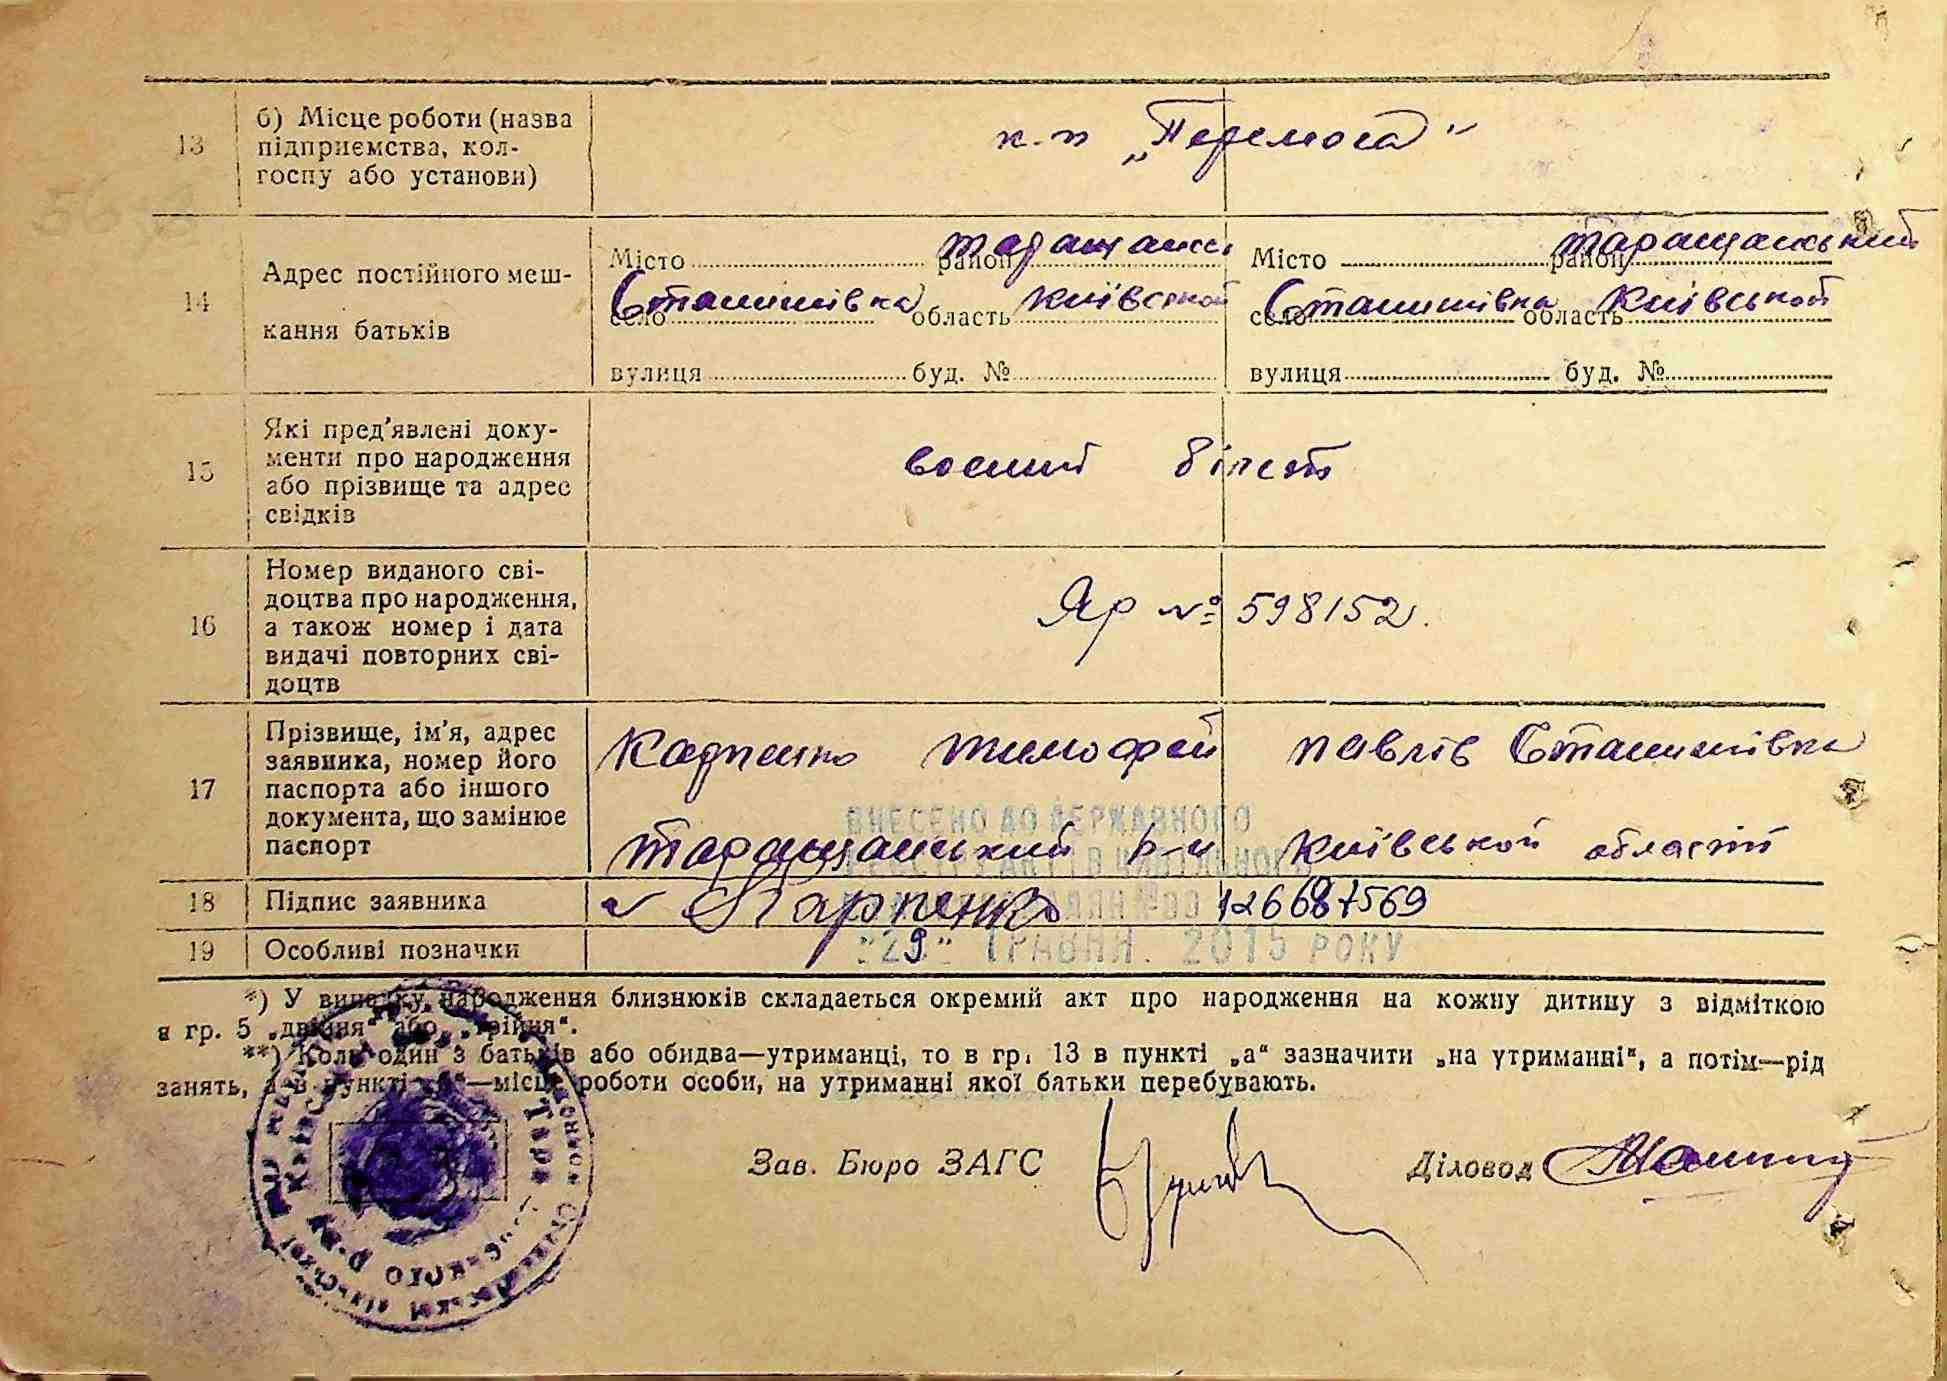 13 б) Місце роботи (назва
підприємства, кол-
госпу або установи)
к-п „Перемога"
14 Адрес постійного меш-
кання батьків
Місто район Таращанськ
село Станишівка область Київської
вулиця буд. №
Місто район Таращанський
село Станишівка область Київської
вулиця буд. №
15 Які пред'явлені доку-
менти про народження
або прізвище та адрес
свідків
воєний білет
16 Номер виданого сві-
доцтва про народження,
а також номер і дата
видачі повторних сві-
доцтв
Яр № 598152.
17 Прізвище, ім'я, адрес
заявника, номер його
паспорта або іншого
документа, що замінює
паспорт
Карпенко Тимофей Павлів Станишівка
Таращанський р-н Київської області
ВНЕСЕНО ДО ДЕРЖАВНОГО
РЕЄСТРУ АКТІВ ЦИВІЛЬНОГО
18 Підпис заявника
Карпенко
126687569
19 Особливі позначки
ТРАВНЯ. 2015 РОКУ
*) У випадку народження близнюків складається окремий акт про народження на кожну дитину з відміткою
в гр. 5 „двійня" або „трійня".
**) Коли один з батьків або обидва—утриманці, то в гр. 13 в пункті „а" зазначити „на утриманні", а потім—рід
занять, а в пункті „б"—місце роботи особи, на утриманні якої батьки перебувають.
Зав. Бюро ЗАГС
Діловод